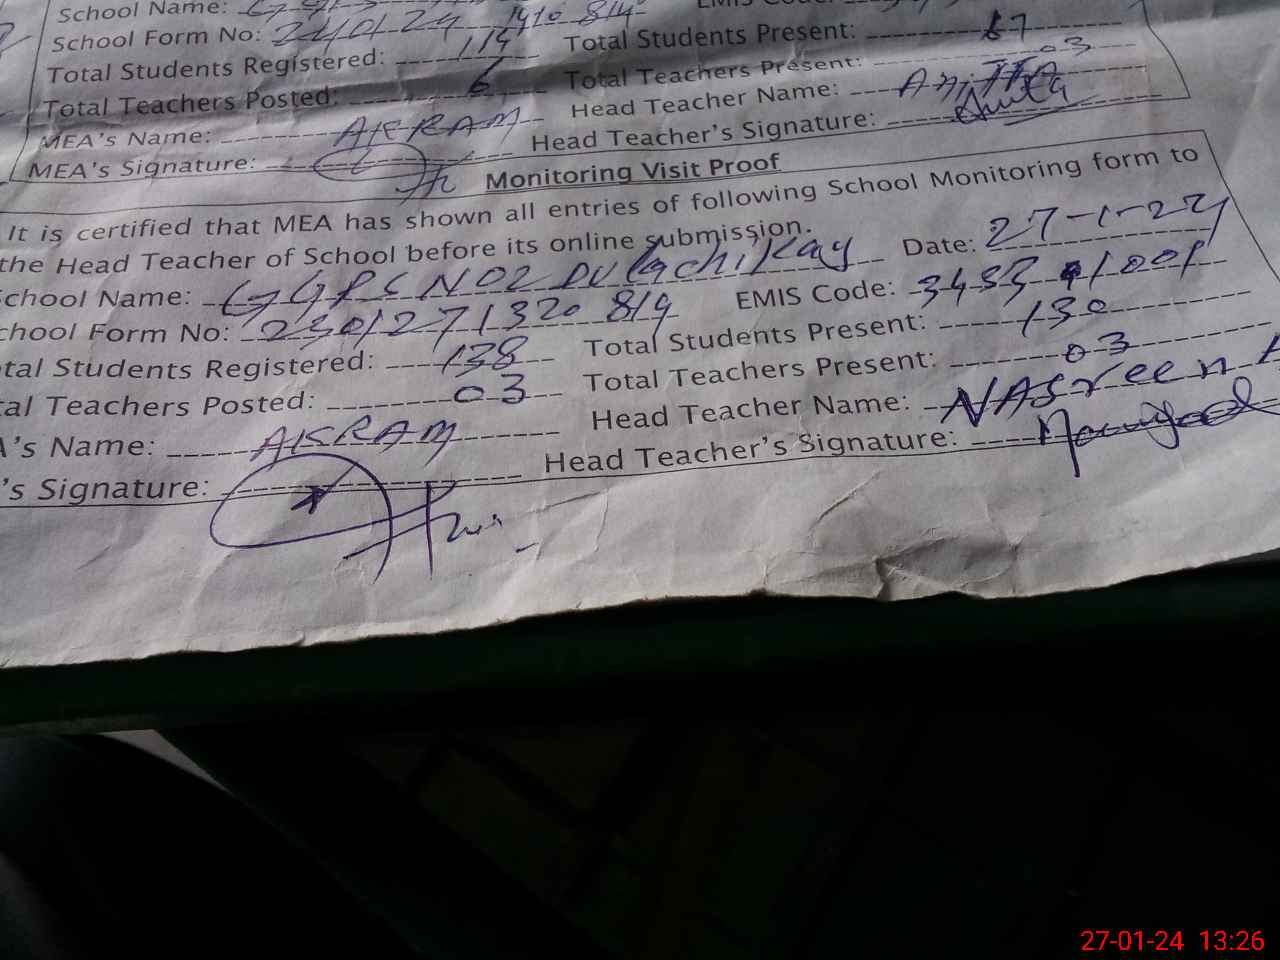 School Name:
School Form No: 240124 1410 814
Total Students Registered: 114 Total Students Present: 67
Total Teachers Posted: 6 Total Teachers Present: 03
MEA's Name: AKRAM Head Teacher Name:
MEA's Signature: Head Teacher's Signature:
Monitoring Visit Proof
It is certified that MEA has shown all entries of following School Monitoring form to
the Head Teacher of School before its online submission.
School Name: GGPS NO2 Date: 27-1-24
chool Form No: 2301271320 814 EMIS Code:
tal Students Registered: 138 Total Students Present: 130
al Teachers Posted: 03 Total Teachers Present: 03
A's Name: AKRAM Head Teacher Name: NASreen
's Signature: Head Teacher's Signature:
27-01-24 13:26